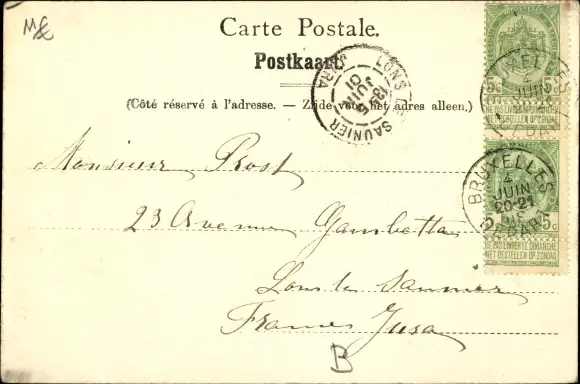 Carte Postale.
Postkaart.
(Côté réservé à l'adresse. — Zijde voor het adres alleen.)
LONS SAUNIER
JURA
JUIN
01
BRUXELLES
4
JUIN
BRUXELLES
4
JUIN
20-21
5c 5c
NE PAS LIVRER LE DIMANCHE
NIET BESTELLEN OP ZONDAG
5c 5c
NE PAS LIVRER LE DIMANCHE
NIET BESTELLEN OP ZONDAG
Monsieur Prost
23 Avenue Gambetta
Lons le Saunier
France Jura
B